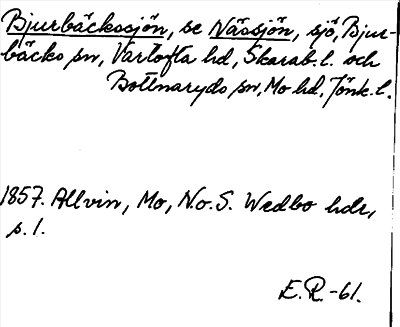 Bjurbäckssjön, se Nässjön, sjö, Bjur-
bäcks sn, Vartofta hd, Skarab. l. och
Bottnaryds sn, Mo hd, Jönk. l.
1857. Allvin, Mo, N. o. S. Wedbo hdr,
s. 1.
E. R. -61.